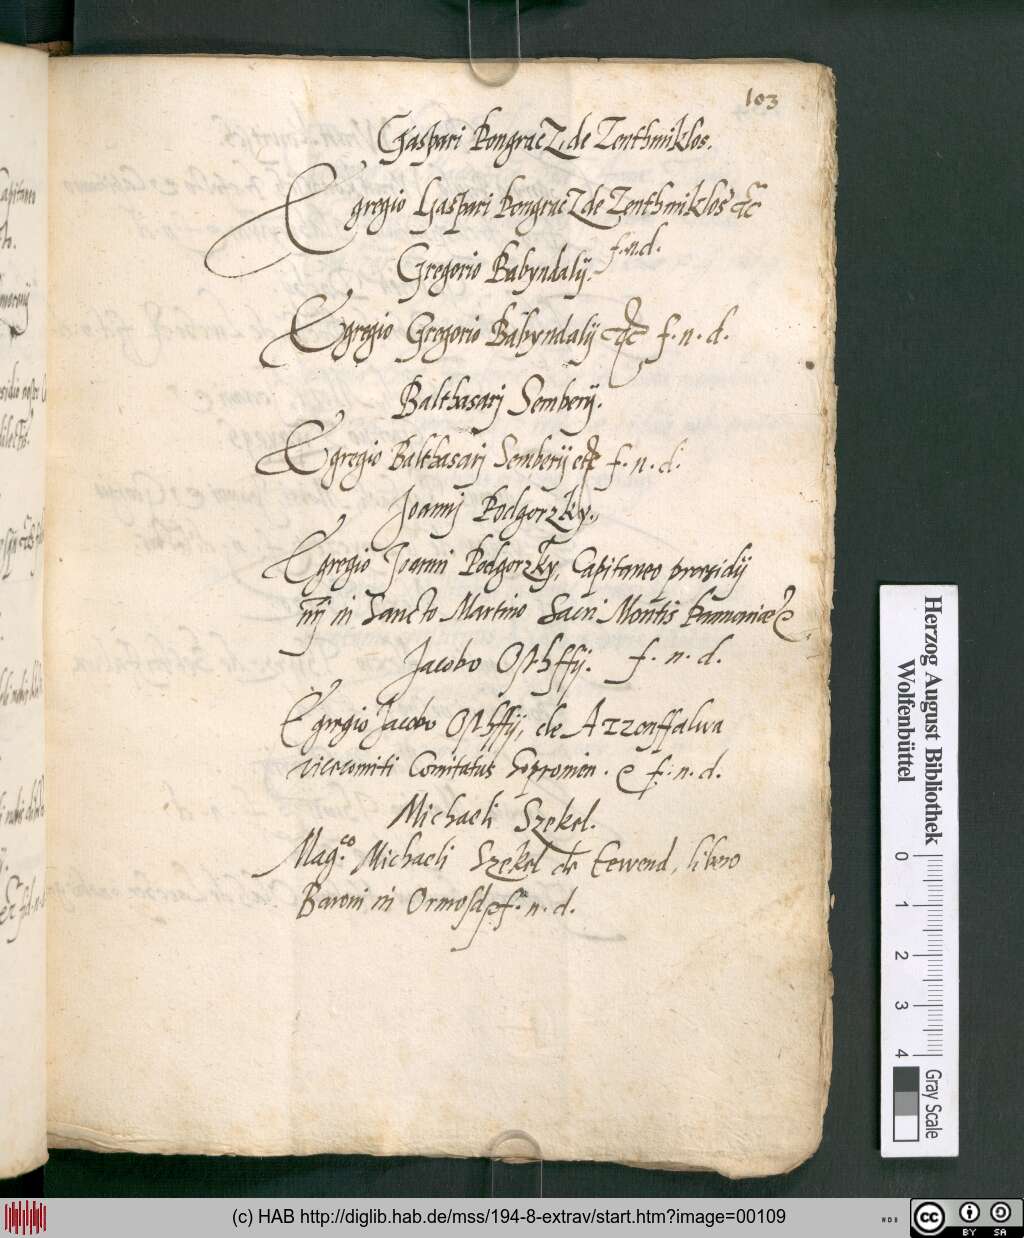 103
Gaspari Kongracz, de Zenthmiklos.
Egregio Gaspari Kongracz de Zenthmiklos etc
f. n. d.
Gregorio Babyndalij.
Egregio Gregorio Babyndalij etc f. n. d.
Balthasarj Semberij.
Egregio Balthasarj Semberij etc f. n. d.
Joannj Podgorzky.
Egregio Joanni Podgorzky, Capitaneo praesidij
nrj in Sancto Martino Sacri Montis Pannoniae &
f. n. d.
Jacobo Osthffij.
Egregio Jacobo Osthffij, de Azzonffalwa
vicecomiti Comitatus Sopronien. & f. n. d.
Michaeli Szekel.
Mag.co Michaeli Szekel de Kewend, libero
Baroni in Ormosd & f. n. d.
Herzog August Bibliothek
Wolfenbüttel
0 1 2 3 4
Gray Scale
(c) HAB http://diglib.hab.de/mss/194-8-extrav/start.htm?image=00109
WDB
cc
BY SA